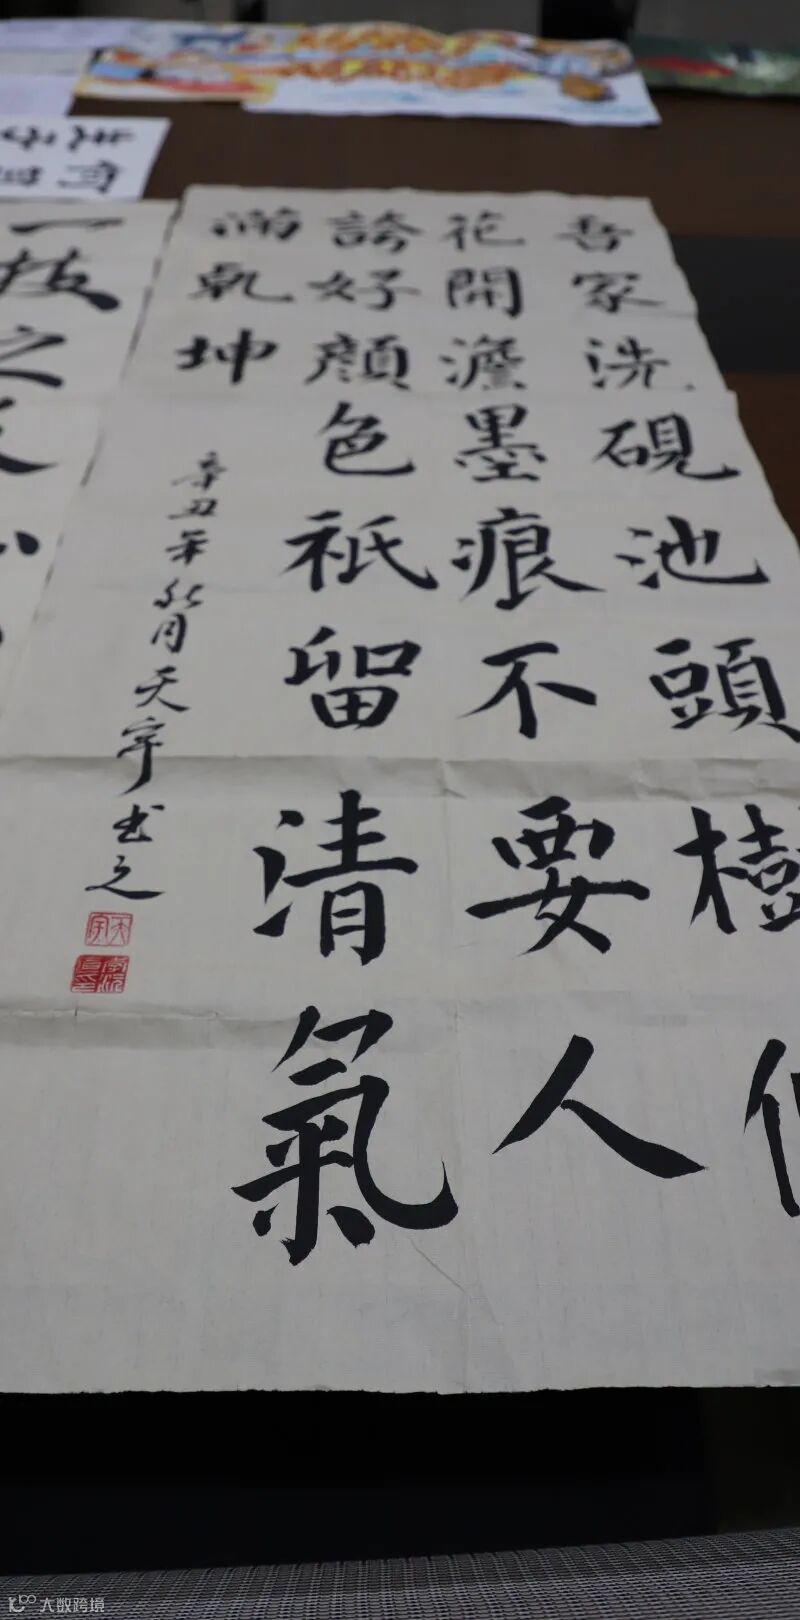 吾家洗硯池頭樹
花開澹墨痕不要人
誇好顔色祇留清氣
滿乾坤
辛丑年秋月天宇书之
天宇
一技之
大数跨境